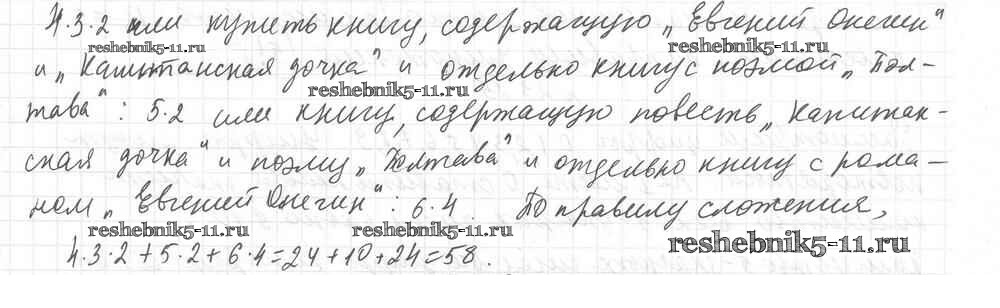 4·3·2 или купить книгу, содержащую „Евгений Онегин“
reshebnik5-11.ru reshebnik5-11.ru
и „Капитанская дочка“ и отдельно книгу с поэмой „Пол-
reshebnik5-11.ru
тава“: 5·2 или книгу, содержащую повесть „Капитан-
ская дочка“ и поэму „Полтава“ и отдельно книгу с рома-
ном „Евгений Онегин“: 6·4. По правилу сложения,
reshebnik5-11.ru reshebnik5-11.ru
4·3·2+5·2+6·4=24+10+24=58.
reshebnik5-11.ru